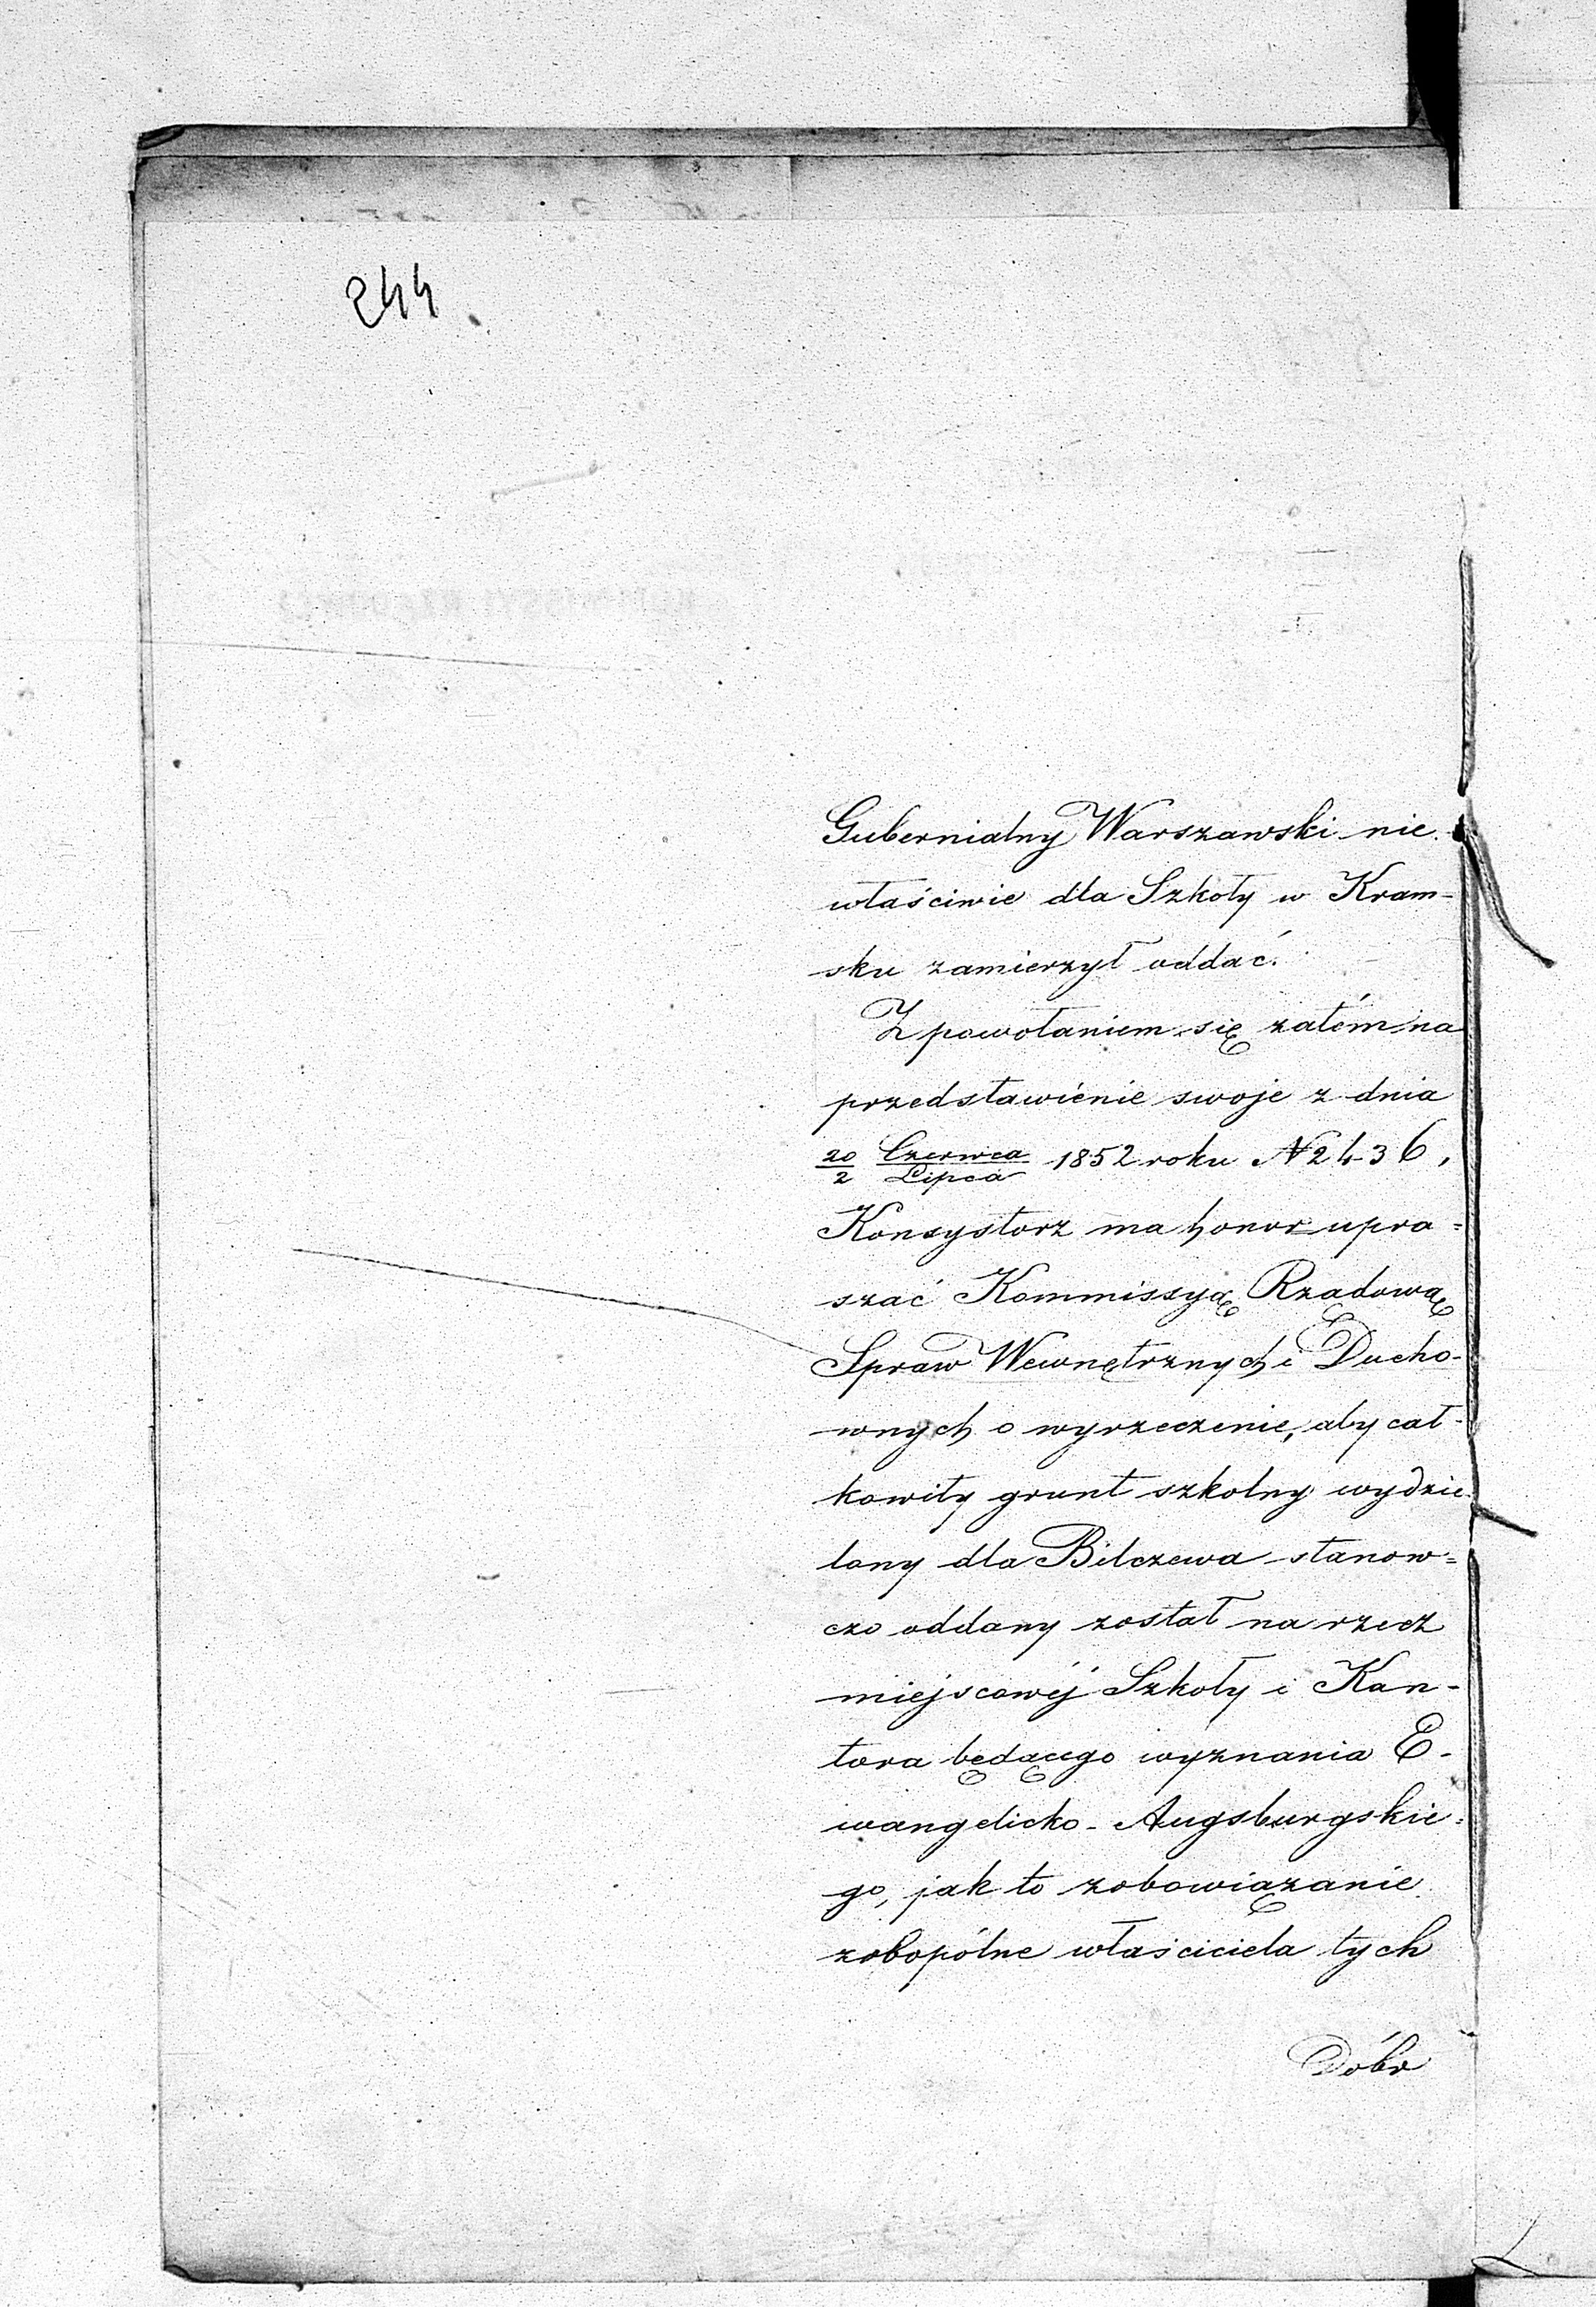 244
Gubernialny Warszawski nie
właściwie dla Szkoły w Kram-
sku zamierzył oddać.
Z powołaniem się zatém na
przedstawiénie swoje z dnia
20/2 Czerwca/Lipca 1852 roku N 2436,
Konsystorz ma honor upra=
szać Kommissyą Rządową
Spraw Wewnętrznych i Ducho-
wnych o wyrzeczenie, aby cał-
kowity grunt szkolny wydzie
lony dla Bilczewa stanow=
czo oddany został na rzecz
miejscowéj Szkoły i Kan-
tora będącego wyznania E-
wangelicko-Augsburgskie=
go, jak to zobowiązanie
zobopólne właściciela tych
Dóbr